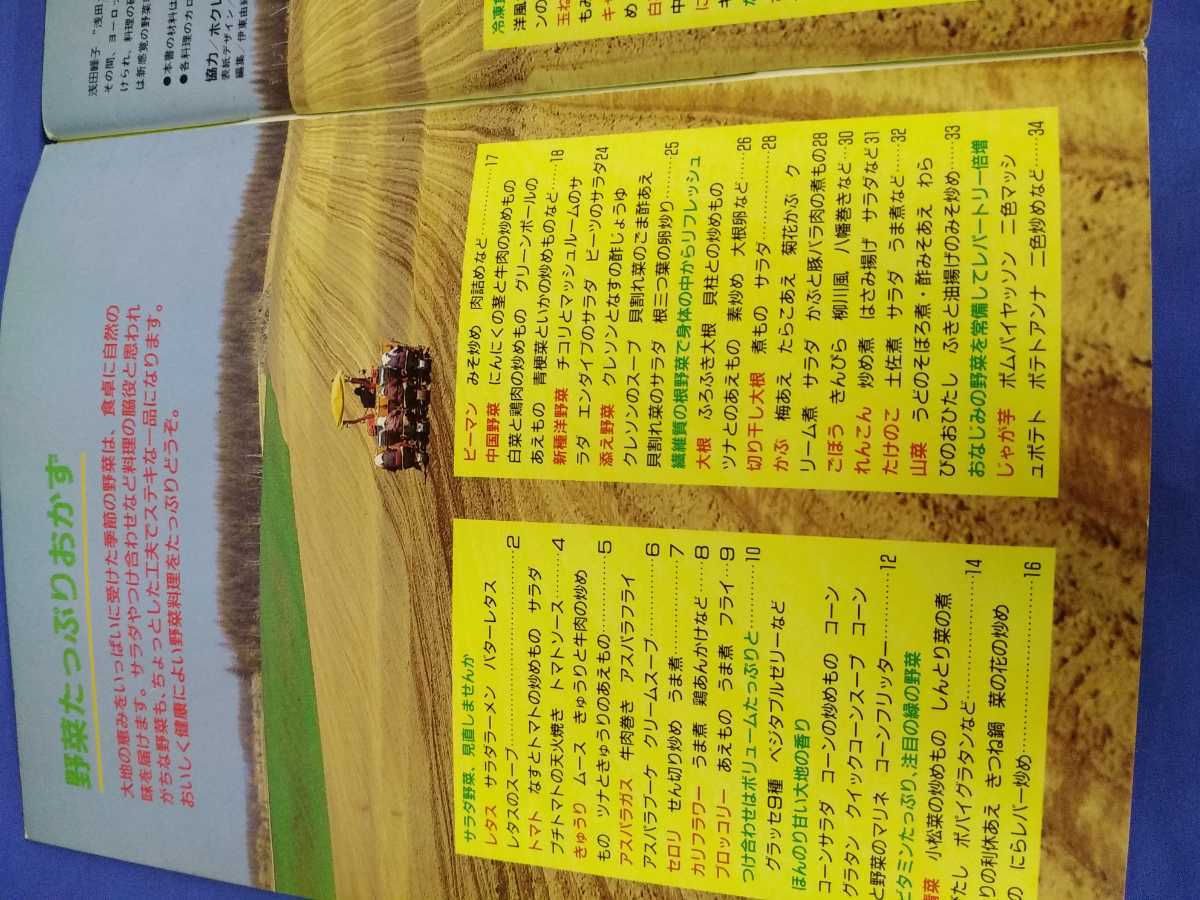 野菜たっぷりおかず
大地の恵みをいっぱいに受けた季節の野菜は、食卓に自然の
味を届けます。サラダやつけ合わせなど料理の脇役と思われ
がちな野菜も、ちょっとした工夫でステキな一品になります。
おいしく健康によい野菜料理をたっぷりどうぞ。
サラダ野菜、見直しませんか
レタス サラダラーメン バターレタス
レタスのスープ……2
トマト なすとトマトの炒めもの サラダ
プチトマトの天火焼き トマトソース……4
きゅうり ムース きゅうりと牛肉の炒め
もの ツナときゅうりのあえもの……5
アスパラガス 牛肉巻き アスパラフライ
アスパラブーケ クリームスープ……6
セロリ せん切り炒め うま煮……7
カリフラワー うま煮 鶏あんかけなど……8
ブロッコリー あえもの うま煮 フライ…9
つけ合わせはボリュームたっぷりと……10
グラッセ9種 ベジタブルゼリーなど
ほんのり甘い大地の香り
コーンサラダ コーンの炒めもの コーン
グラタン クイックコーンスープ コーン
と野菜のマリネ コーンフリッター……12
ビタミンたっぷり、注目の緑の野菜
菜 小松菜の炒めもの しんとり菜の煮
びたし ポパイグラタンなど……14
りの利休あえ きつね鍋 菜の花の炒め
の にらレバー炒め……16
ピーマン みそ炒め 肉詰めなど……17
中国野菜 にんにくの茎と牛肉の炒めもの
白菜と鶏肉の炒めもの グリーンボールの
あえもの 青梗菜といかの炒めものなど…18
新種洋野菜 チコリとマッシュルームのサ
ラダ エンダイブのサラダ ビーツのサラダ24
添え野菜 クレソンとなすの酢じょうゆ
クレソンのスープ 貝割れ菜のごま酢あえ
貝割れ菜のサラダ 根三つ葉の卵炒り……25
繊維質の根野菜で身体の中からリフレッシュ
大根 ふろふき大根 貝柱との炒めもの
ツナとのあえもの 素炒め 大根卵など…26
切り干し大根 煮もの サラダ……28
かぶ 梅あえ たらこあえ 菊花かぶ ク
リーム煮 サラダ かぶと豚バラ肉の煮もの28
ごぼう きんぴら 柳川風 八幡巻きなど…30
れんこん 炒め煮 はさみ揚げ サラダなど31
たけのこ 土佐煮 サラダ うま煮など……32
山菜 うどのそぼろ煮・酢みそあえ わら
びのおひたし ふきと油揚げのみそ炒め…33
おなじみの野菜を常備してレパートリー倍増
じゃが芋 ポムパイヤッソン 二色マッシ
ュポテト ポテトアンナ 二色炒めなど……34
浅田峰子
その間、ヨーロッ
けられ、料理の
は新感覚の野菜
●本書の材料は
●各料理のカロ
協力/ホクレ
表紙デザイン/
編集/伊東由
冷凍
洋風
ンの
玉ね
もみ
キャ
め
白
中
に